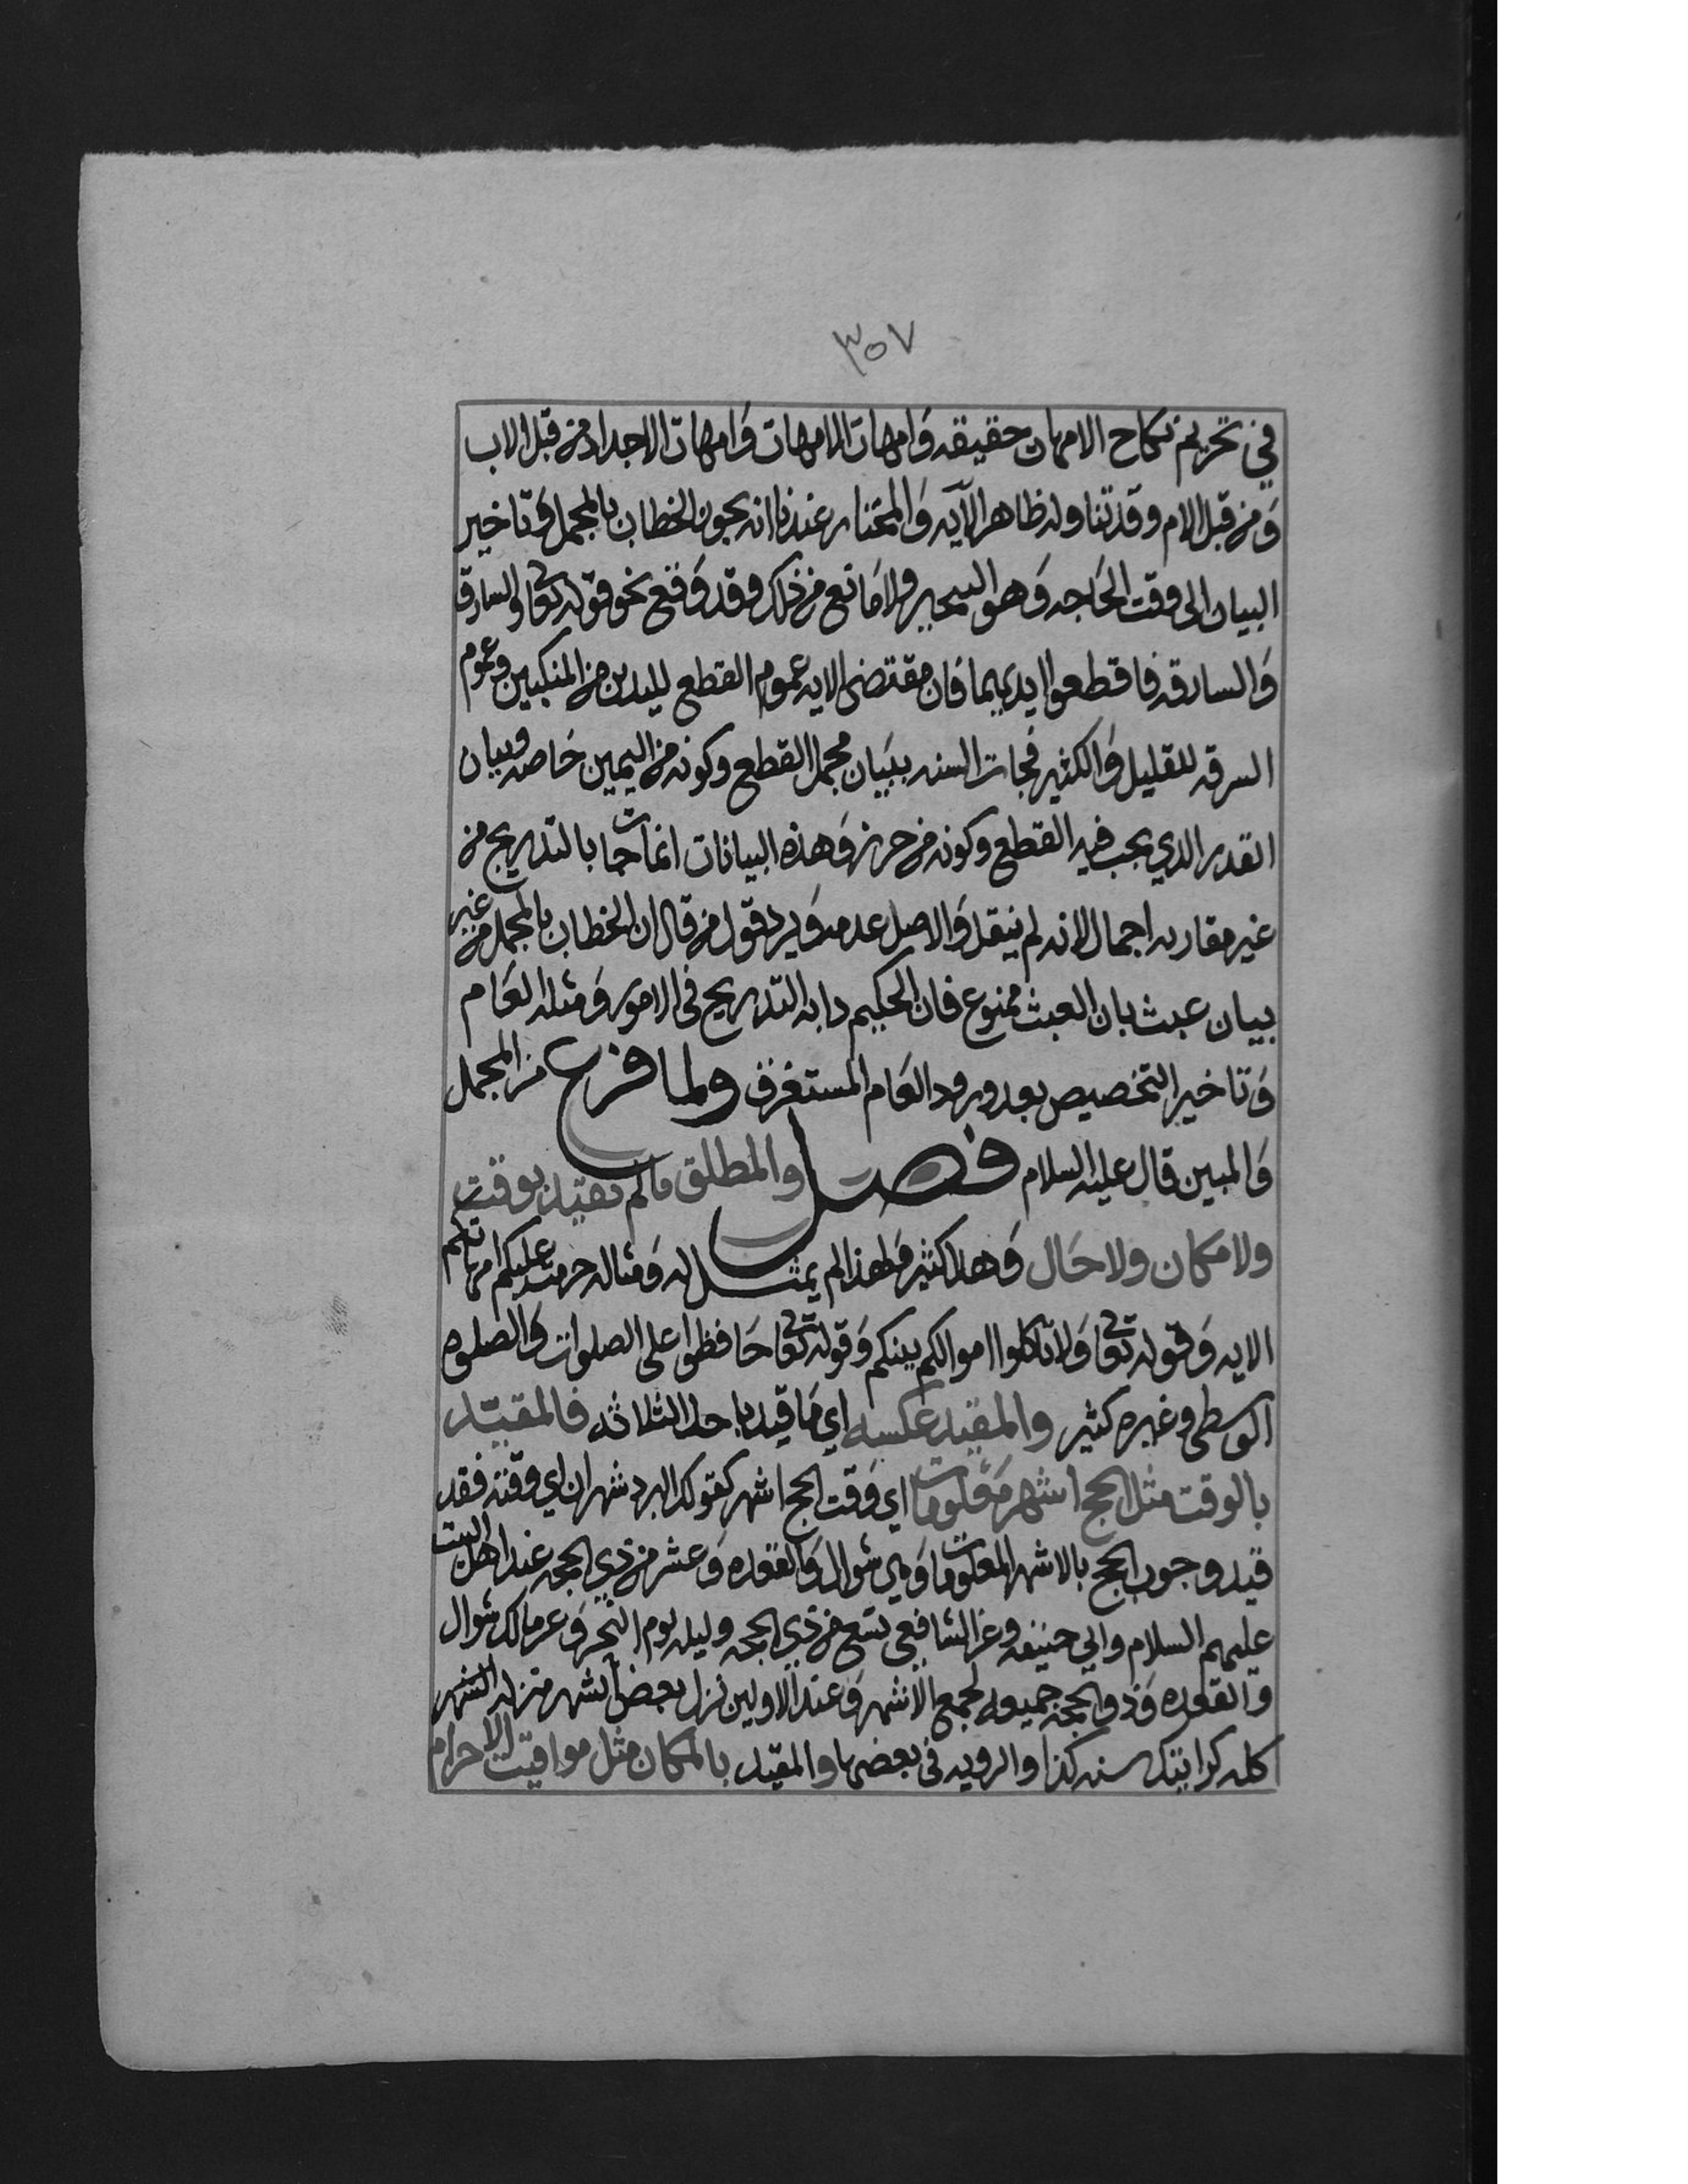 ٣٥٧
في تحريم نكاح الامهات حقيقه وامهات الامهات وامهات الاجداد من قبل الاب
ومن قبل الام وقد تناوله ظاهر الآيه والمختار عندنا انه يجوز الخطاب بالمجمل وتاخير
البيان الى وقت الحاجه وهو الصحيح ولا مانع من ذلك وقد وقع نحو قوله تعا والسارق
والسارقه فاقطعوا ايديهما فان مقتضى الايه عموم القطع لليدين من المنكبين وعموم
السرقه للقليل والكثير فجات السنه ببيان مجمل القطع وكونه من اليمين خاصه وبيان
القدر الذي يجب فيه القطع وكونه من حرز وهذه البيانات انما جات بالتدريج من
غير مقارنه اجمال لانه لم ينقل والاصل عدمه ويرد قول من قال ان الخطاب بالمجمل من غير
بيان عبث بان العبث ممنوع فان الحكيم دابه التدريج في الامور ومثله العام
وتاخير التخصيص بعد ورود العام المستغرق ولما فرغ من المجمل
والمبين قال عليه السلام فصل والمطلق مالم يقيد بوقت
ولا مكان ولا حال وهذا كثير ولهذا لم يمثل له ومثاله حرمت عليكم امهاتكم
الايه وقوله تعا ولا تاكلوا اموالكم بينكم وقوله تعا حافظوا على الصلوات والصلوه
الوسطى وغيره كثير والمقيد عكسه اي ما قيد باحد الثلاثه فالمقيد
بالوقت مثل الحج اشهر معلومات اي وقت الحج اشهر كقولك البرد شهران اي وقته فقد
قيد وجوب الحج بالاشهر المعلومات وهي شوال والقعده وعشر من ذي الحجه عند اهل البيت
عليهم السلام وابي حنيفه وعن الشافعي تسع من ذي الحجه وليله يوم النحر وعن مالك شوال
والقعده وذو الحجه جميعه لجمع الاشهر وعند الاولين نزل بعض الشهر منزله الشهر
كله كرايتك سنه كذا والرويه في بعضها والمقيد بالمكان مثل مواقيت الاحرام